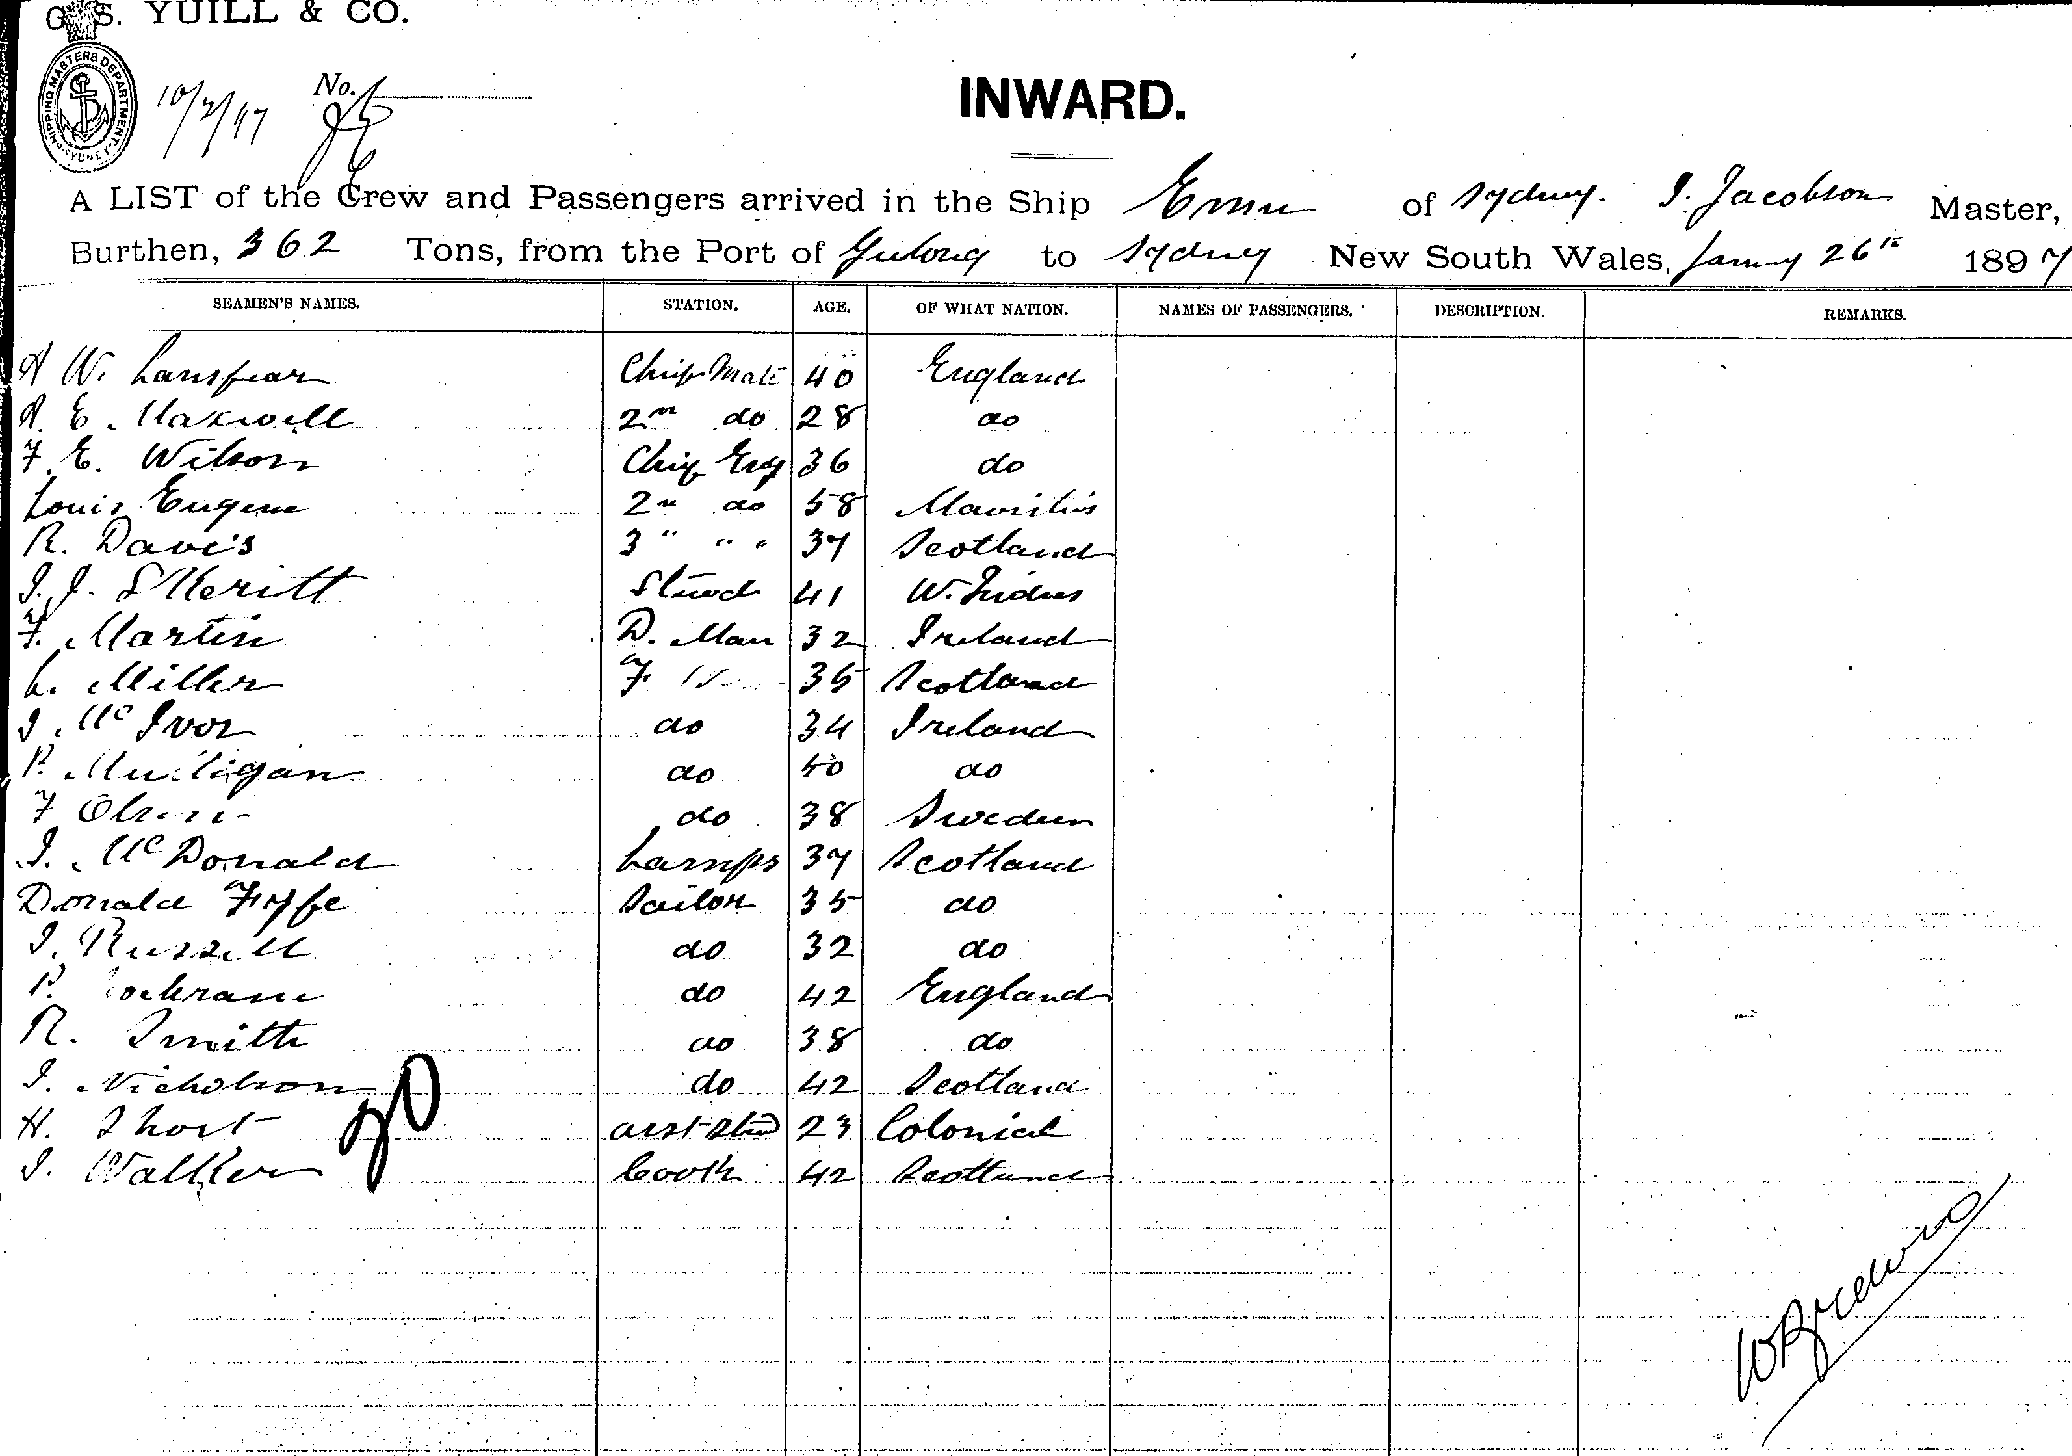 G. S. YUILL & CO.
SHIPPING MASTERS DEPARTMENT SYDNEY
10/2/97 No.
INWARD.
A LIST of the Crew and Passengers arrived in the Ship Emu of Sydney. J. Jacobson Master,
Burthen, 362 Tons, from the Port of Geelong to Sydney New South Wales, January 26th 1897
SEAMEN'S NAMES. STATION. AGE. OF WHAT NATION. NAMES OF PASSENGERS. DESCRIPTION. REMARKS.
A W. Lanspear Chief Mate 40 England
A. E. Maxwell 2nd do 28 do
F. E. Wilson Chief Eng 36 do
Louis Eugene 2n do 58 Mauritius
R. Davis 3 " " " 37 Scotland
J. J. Steward 41 W. Indies
F. Martin D. Man 32 Ireland
L. Miller F. 35 Scotland
J. McIvor do 34 Ireland
P. Mulligan do 40 do
F Olsen do 38 Sweden
J. McDonald Lamps 37 Scotland
Donald Fyffe Sailor 35 do
J. Russell do 32 do
P. Cochrane do 42 England
R. Smith do 38 do
J. Nicholson do 42 Scotland
H. Short asst Std 23 Colonial
J. Walker Cook 42 Scotland